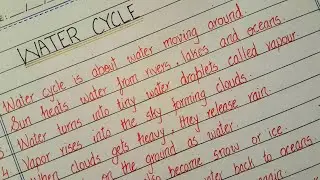 WATER CYCLE
Water cycle is about water moving around.
Sun heats water from rivers, lakes and oceans.
Water turns into tiny water droplets called vapour.
4 Vapor rises into the sky forming clouds.
When clouds gets heavy, they release rain.
on the ground as water.
also become snow or ice.
water back to oceans.